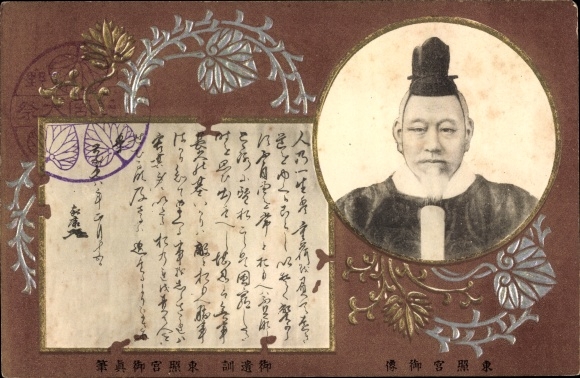 人の一生は重荷を負て遠き
道をゆくかことしいそくへからす
不自由を常とおもへは不足
なしこころに望おこらは困窮したる
時を思ひ出すへし堪忍は無事
長久の基いかりは敵とおもへ勝事
はかり知てまくる事をしらされは
害其身にいたるおのれを責て人を
せむるな及はさるは過たるよりまされり
慶長八年正月十五日
家康
東照宮御像
御遺訓 東照宮御眞筆